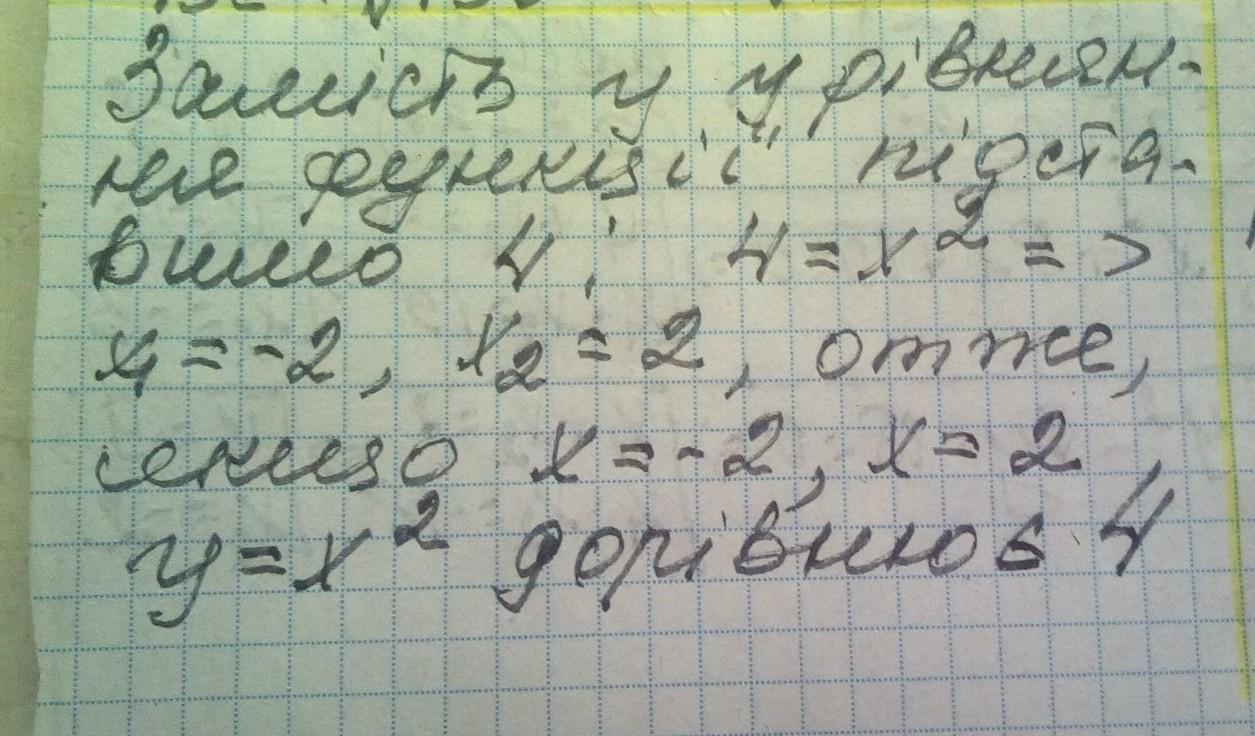 Замість y у рівнян-
ня функції підста-
вимо 4: 4 = x² =>
x₁ = -2, x₂ = 2, отже,
якщо x = -2, x = 2,
y = x² дорівнює 4